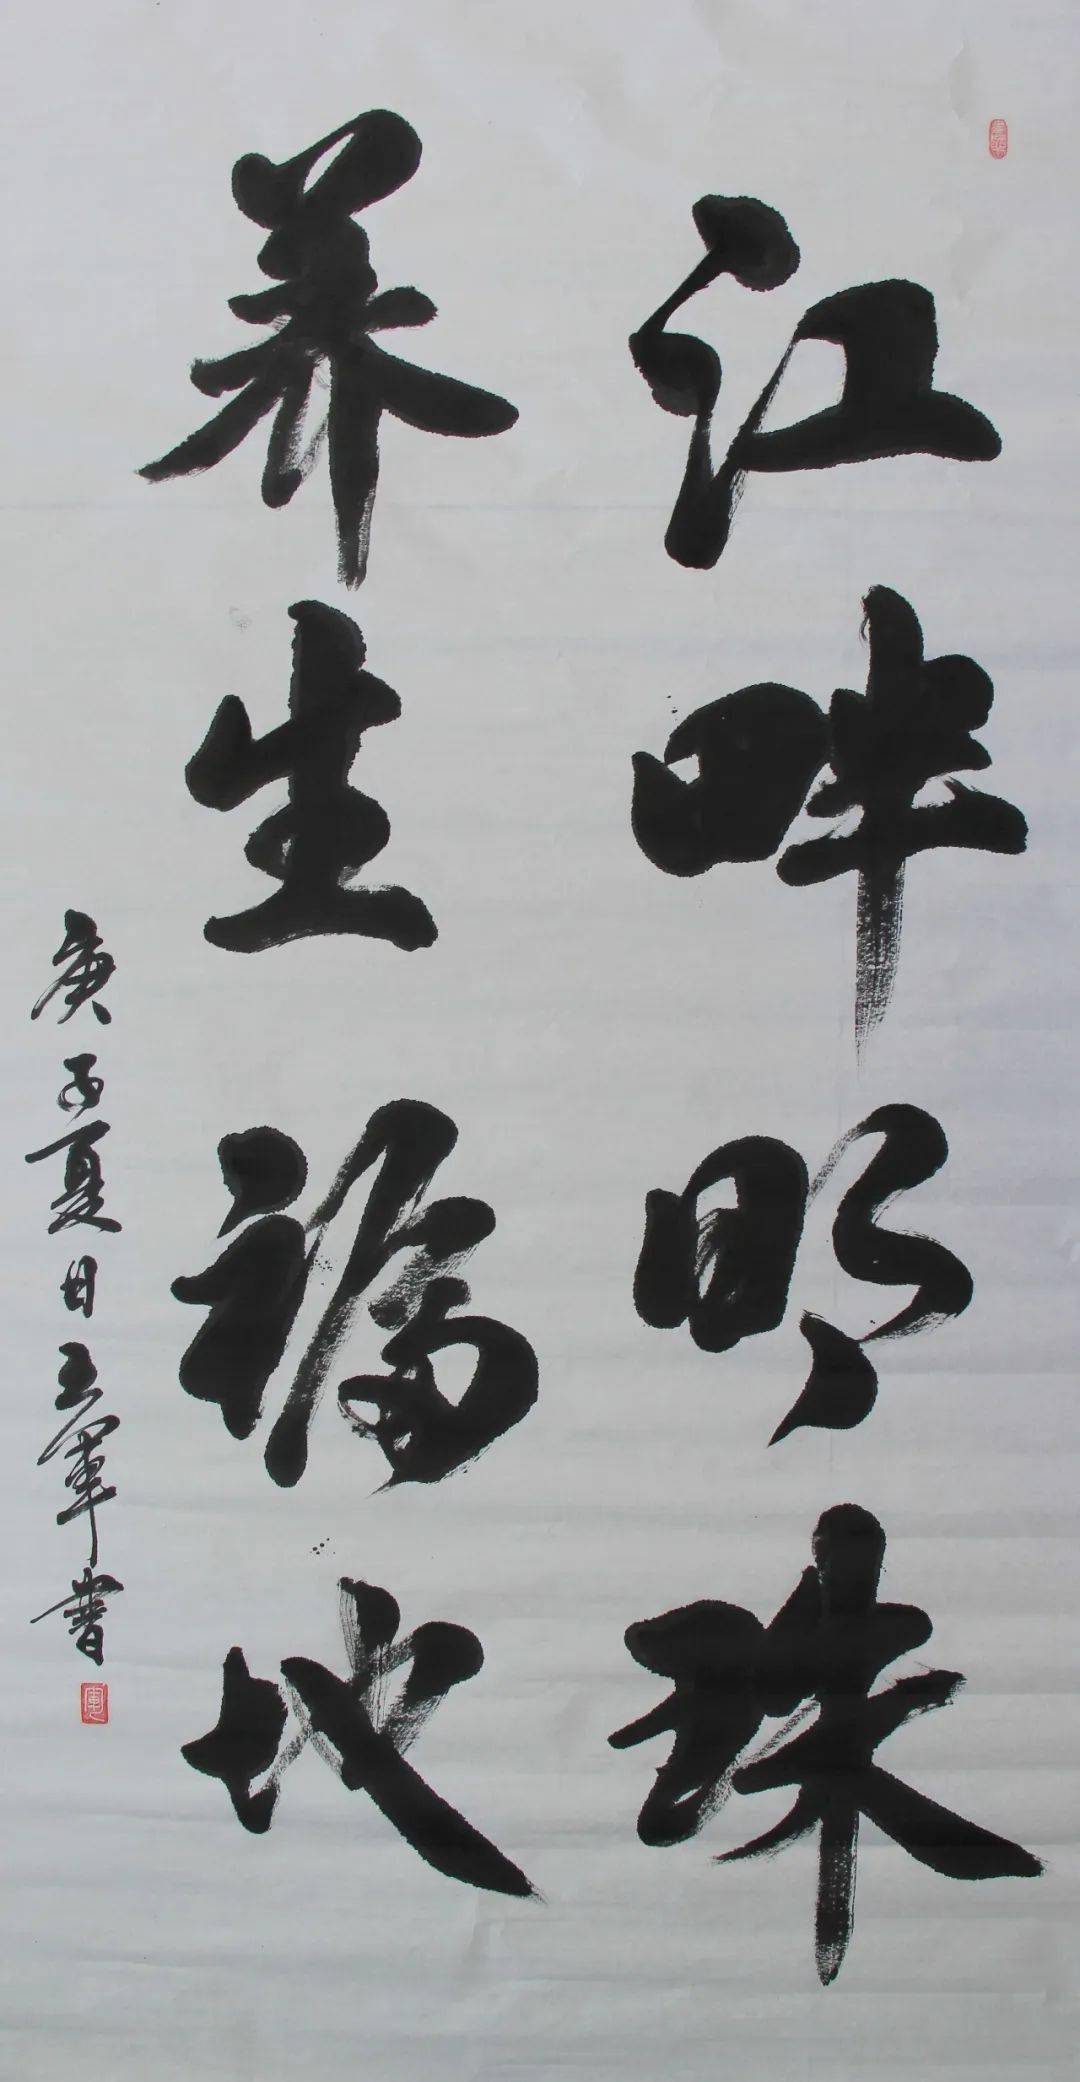 江畔明珠
养生福地
庚子夏日王军书